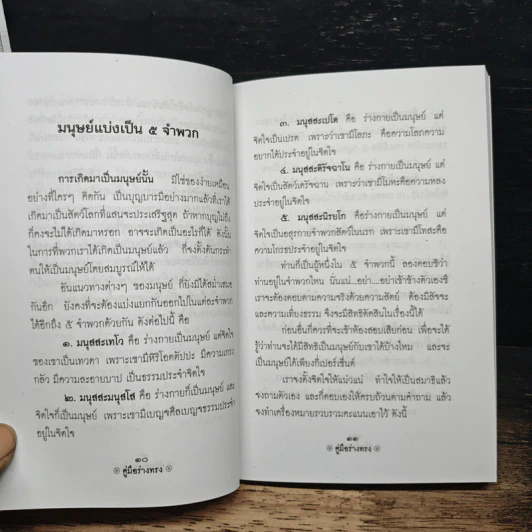 มนุษย์แบ่งเป็น ๕ จำพวก
การเกิดมาเป็นมนุษย์นั้น มิใช่ของง่ายเหมือน
อย่างที่ใครๆ คิดกัน เป็นบุญบารมีอย่างมากแล้วที่เราได้
เกิดมาเป็นสัตว์โลกที่แสนจะประเสริฐสุด ถ้าหากบุญไม่ถึง
ก็คงจะไม่ได้เกิดมาหรอก อาจจะเกิดเป็นอะไรก็ได้ ดังนั้น
ในการที่พวกเราได้เกิดเป็นมนุษย์แล้ว ก็จงตั้งต้นกระทำ
ตนให้เป็นมนุษย์โดยสมบูรณ์ให้ได้
อันแนวทางต่างๆ ของมนุษย์ ก็ยังมิได้สม่ำเสมอ
กันอีก ยังคงที่จะต้องแบ่งแยกกันออกไปในแต่ละจำพวก
ได้อีกถึง ๕ จำพวกด้วยกัน ดังต่อไปนี้ คือ
๑. มนุสสะเทโว คือ ร่างกายเป็นมนุษย์ แต่จิตใจ
ของเขาเป็นเทวดา เพราะเขามีหิริโอตตัปปะ มีความเกรง
กลัว มีความละอายบาป เป็นธรรมประจำจิตใจ
๒. มนุสสะมนุสโส คือ ร่างกายก็เป็นมนุษย์ และ
จิตใจก็เป็นมนุษย์ เพราะเขามีเบญจศีลเบญจธรรมประจำ
อยู่ในจิตใจ
๑๐
คู่มือร่างทรง
๓. มนุสสะเปโต คือ ร่างกายเป็นมนุษย์ แต่
จิตใจเป็นเปรต เพราะว่าเขามีโลภะ คือความโลภความ
อยากได้ประจำอยู่ในจิตใจ
๔. มนุสสะดิรัจฉาโน คือ ร่างกายเป็นมนุษย์ แต่
จิตใจเป็นสัตว์เดรัจฉาน เพราะว่าเขามีโมหะคือความหลง
ประจำอยู่ในจิตใจ
๕. มนุสสะนิรยโก คือร่างกายเป็นมนุษย์ แต่
จิตใจเป็นอสุรกายจำพวกสัตว์ในนรก เพราะเขามีโทสะคือ
ความโกรธประจำอยู่ในจิตใจ
ท่านก็เป็นผู้หนึ่งใน ๕ จำพวกนี้ ลองตอบซิว่า
ท่านอยู่ในจำพวกไหน นั่นแน่...อย่า...อย่าเข้าข้างตัวเองซิ
เราจะต้องตอบตามความจริงด้วยความสัตย์ ต้องมีสัจจะ
และความเที่ยงธรรม จึงจะมีสิทธิตัดสินในเรื่องนี้ได้
ก่อนอื่นก็ควรที่จะเข้าห้องสอบเสียก่อน เพื่อจะได้
รู้ว่าท่านจะได้มีสิทธิเป็นมนุษย์กับเขาได้บ้างไหม และจะ
เป็นมนุษย์ได้เพียงกี่เปอร์เซ็นต์
เราจงตั้งจิตใจให้แน่วแน่ ทำใจให้เป็นสมาธิแล้ว
จงถามตัวเอง และก็ตอบเองให้ครบถ้วนตามคำถาม แล้ว
จงทำเครื่องหมายรวบรวมคะแนนเอาไว้ ดังนี้
๑๑
คู่มือร่างทรง